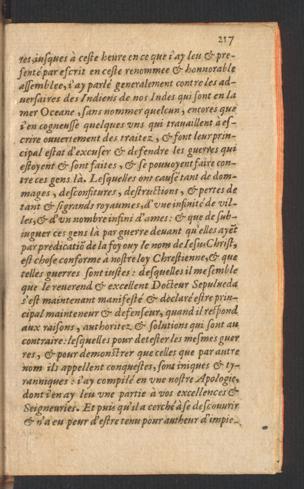 217
res jusques à ceste heure en ce que i'ay leu & pre-
senté par escrit en ceste renommee & honnorable
assemblee, i'ay parlé generalement contre les ad-
uersaires des Indiens de nos Indes qui sont en la
mer Oceane, sans nommer quelcun, encores que
i'en cogneusse quelques vns qui trauaillent à es-
crire ouuertement des traitez, & font leur prin-
cipal estat d'excuser & defendre les guerres qui
estoyent & sont faites, & se pouuoyent faire con-
tre ces gens là. Lesquelles ont causé tant de dom-
mages, desconfitures, destructions, & pertes de
tant & si grands royaumes, d'vne infinité de vil-
les, & d'vn nombre infini d'ames: & que de sub-
iuguer ces gens là par guerre deuant qu'elles ayēt
par predicatiō de la foy ouy le nom de Iesus Christ,
est chose conforme à nostre loy Chrestienne, & que
telles guerres sont iustes: desquelles il me semble
que le reuerend & excellent Docteur Sepulueda
s'est maintenant manifesté & declaré estre prin-
cipal mainteneur & defenseur, quand il respond
aux raisons, authoritez, & solutions qui sont au
contraire: lesquelles pour detester les mesmes guer
res, & pour demonstrer que celles que par autre
nom ils appellent conquestes, sont iniques & ty-
ranniques: i'ay compilé en vne nostre Apologie,
dont i'en ay leu vne partie à vos excellences &
Seigneuries. Et puis qu'il a cerché à se descouurir
& n'a eu peur d'estre tenu pour autheur d'impie-